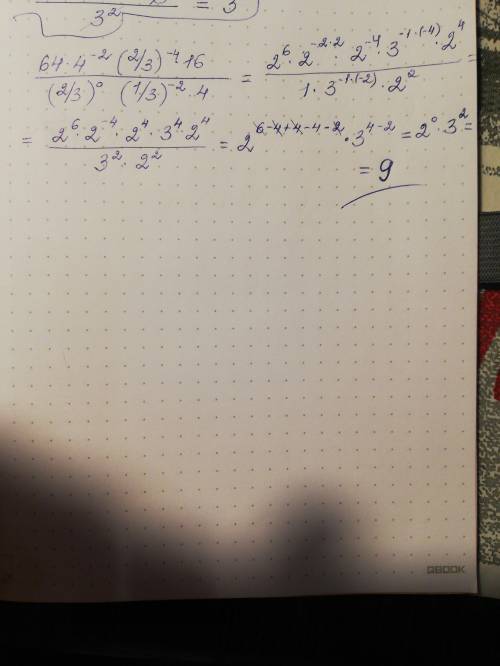 3² = 3
64·4⁻² (2/3)⁻⁴·16 / (2/3)⁰ (1/3)⁻²·4 = 2⁶·2⁻²·²·2⁻⁴·3⁻¹·⁽⁻⁴⁾·2⁴ / 1·3⁻¹·⁽⁻²⁾·2² =
= 2⁶·2⁻⁴·2⁴·3⁴·2⁴ / 3²·2² = 2⁶⁻⁴⁺⁴⁻⁴⁻²·3⁴⁻² = 2⁰·3² =
= 9
QBOOK